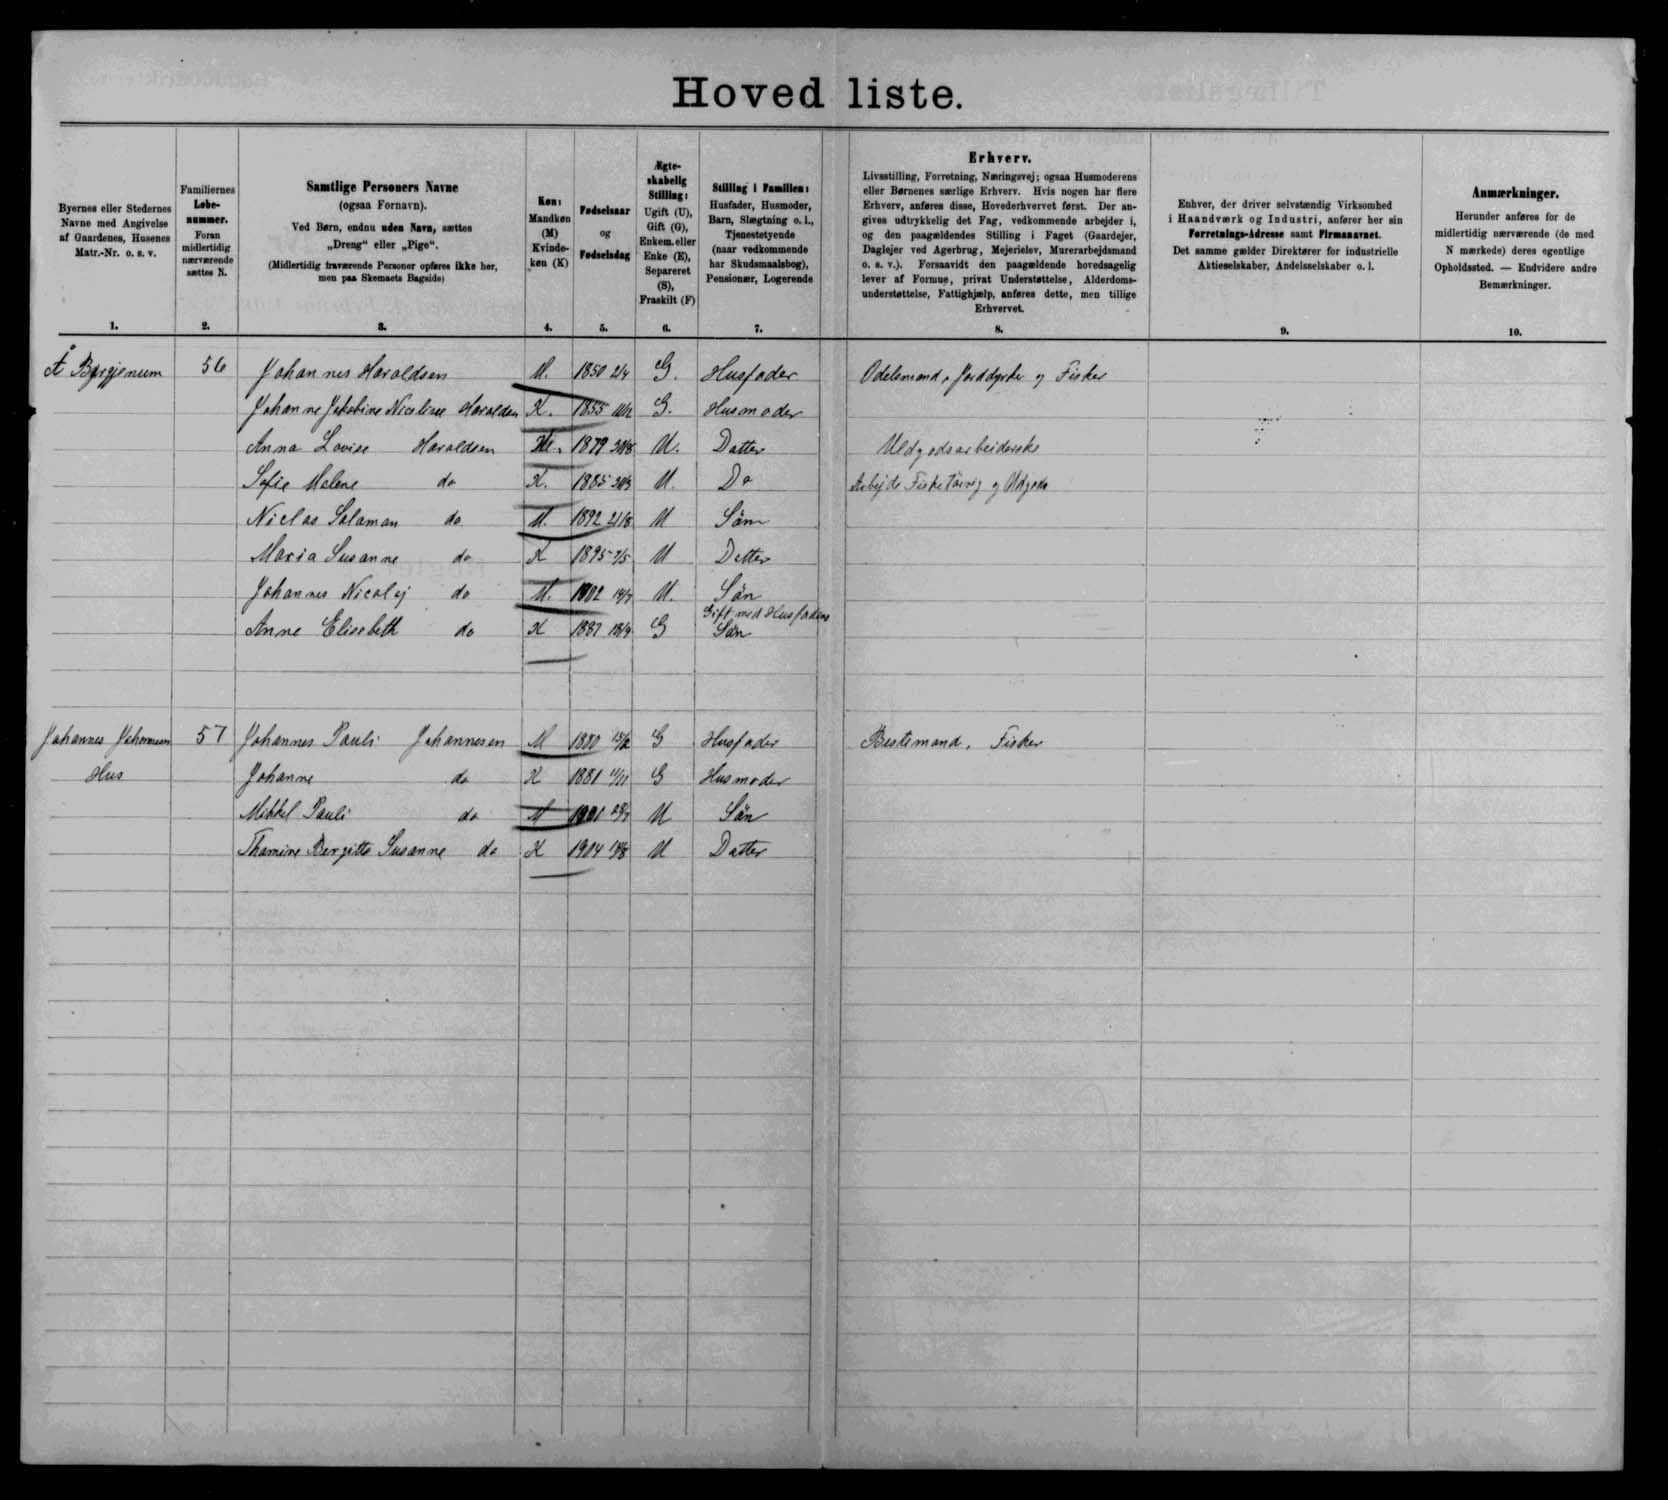 Hoved liste.
Byernes eller Stedernes
Navne med Angivelse
af Gaardenes, Husenes
Matr.-Nr. o. s. v.
1.
Familiernes
Løbe-
nummer.
Foran
midlertidig
nærværende
sættes N.
2.
Samtlige Personers Navne
(ogsaa Fornavn).
Ved Børn, endnu uden Navn, sættes
„Dreng“ eller „Pige“.
(Midlertidig fraværende Personer opføres ikke her,
men paa Skemaets Bagside)
3.
Køn:
Mandkøn
(M)
Kvinde-
køn (K)
4.
Fødselsaar
og
Fødselsdag
5.
Ægte-
skabelig
Stilling:
Ugift (U),
Gift (G),
Enkem. eller
Enke (E),
Separeret
(S),
Fraskilt (F)
6.
Stilling i Familien:
Husfader, Husmoder,
Barn, Slægtning o. l.,
Tjenestetyende
(naar vedkommende
har Skudsmaalsbog),
Pensionær, Logerende
7.
Erhverv.
Livsstilling, Forretning, Næringsvej; ogsaa Husmoderens
eller Børnenes særlige Erhverv. Hvis nogen har flere
Erhverv, anføres disse, Hovederhvervet først. Der an-
gives udtrykkelig det Fag, vedkommende arbejder i,
og den paagældendes Stilling i Faget (Gaardejer,
Daglejer ved Agerbrug, Mejerielev, Murerarbejdsmand
o. s. v.). Forsaavidt den paagældende hovedsagelig
lever af Formue, privat Understøttelse, Alderdoms-
understøttelse, Fattighjælp, anføres dette, men tillige
Erhvervet.
8.
Enhver, der driver selvstændig Virksomhed
i Haandværk og Industri, anfører her sin
Forretnings-Adresse samt Firmanavnet.
Det samme gælder Direktører for industrielle
Aktieselskaber, Andelsselskaber o. l.
9.
Anmærkninger.
Herunder anføres for de
midlertidig nærværende (de med
N mærkede) deres egentlige
Opholdssted. — Endvidere andre
Bemærkninger.
10.
56 Johannes Haraldsen M. 1850 2/4 G. Husfader Odelsmand, Jorddyrker og Fisker
Johanne Jakobine Nicoline Haraldsen K. 1855 G. Husmoder
Anna Lovise Haraldsen 1879 U. Datter Uldgodsarbeiderske
Sofie Malene do K. 1885 U. Do Arbejde Fisketörrig og Uldgods
Niclas Salaman do M. 1892 21/8 U Sön
Maria Susanne do K 1895 U Datter
Johannes Nicolaj do M. 1902 U. Sön
Gift med Husfaderens
Anne Elisebeth do K 1887 G Sön
Johannes 57 Johannes Pauli Johannesen M 1880 G Husfader Bestemand, Fisker
Hus Johanne do K 1881 G Husmoder
Mikkel Pauli do M 1901 U Sön
Thomine Bergitte Susanne do K 1904 U Datter